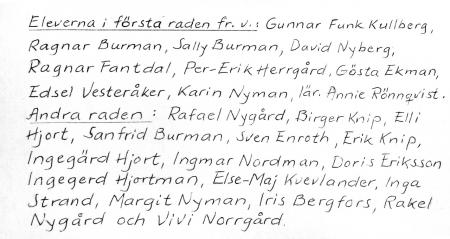 Eleverna i första raden fr. v.: Gunnar Funk Kullberg,
Ragnar Burman, Sally Burman, David Nyberg,
Ragnar Fantdal, Per-Erik Herrgård, Gösta Ekman,
Edsel Vesteråker, Karin Nyman, lär. Annie Rönnqvist.
Andra raden: Rafael Nygård, Birger Knip, Elli
Hjort, Sanfrid Burman, Sven Enroth, Erik Knip,
Ingegärd Hjort, Ingmar Nordman, Doris Eriksson
Ingegerd Hjortman, Else-Maj Kvevlander, Inga
Strand, Margit Nyman, Iris Bergfors, Rakel
Nygård och Vivi Norrgård.